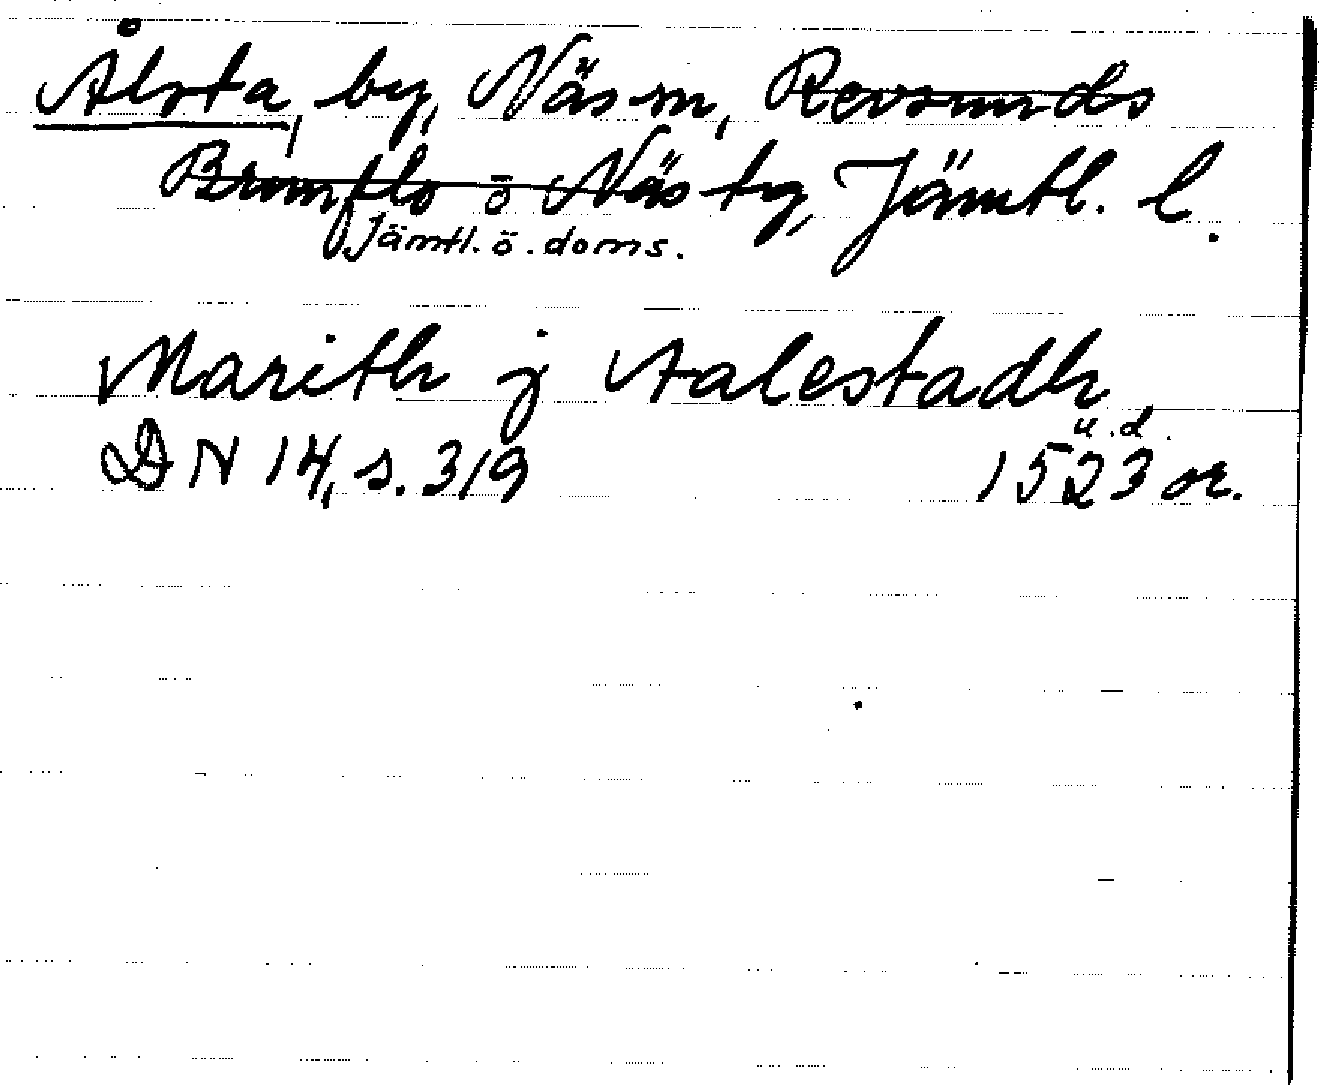 Ålsta, by, Näs sn, Revsunds
Brunflo o Näs tg, Jämtl. l.
Jämtl. ö. doms.
Marith j Aalestadh
u.d.
DN 14, s. 319 1523 or.